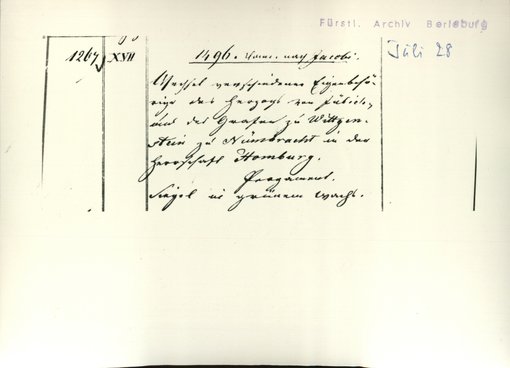 Fürstl. Archiv Berleburg
1267 XVII 1496. Donn. nach Jacobi. Juli 28
Wechsel verschiedener Eigenbehö-
rige des Herzogs von Jülich,
und des Grafen zu Wittgen-
stein zu Nümbracht in der
Herrschaft Homburg.
Pergament.
Siegel in grünem Wachs.